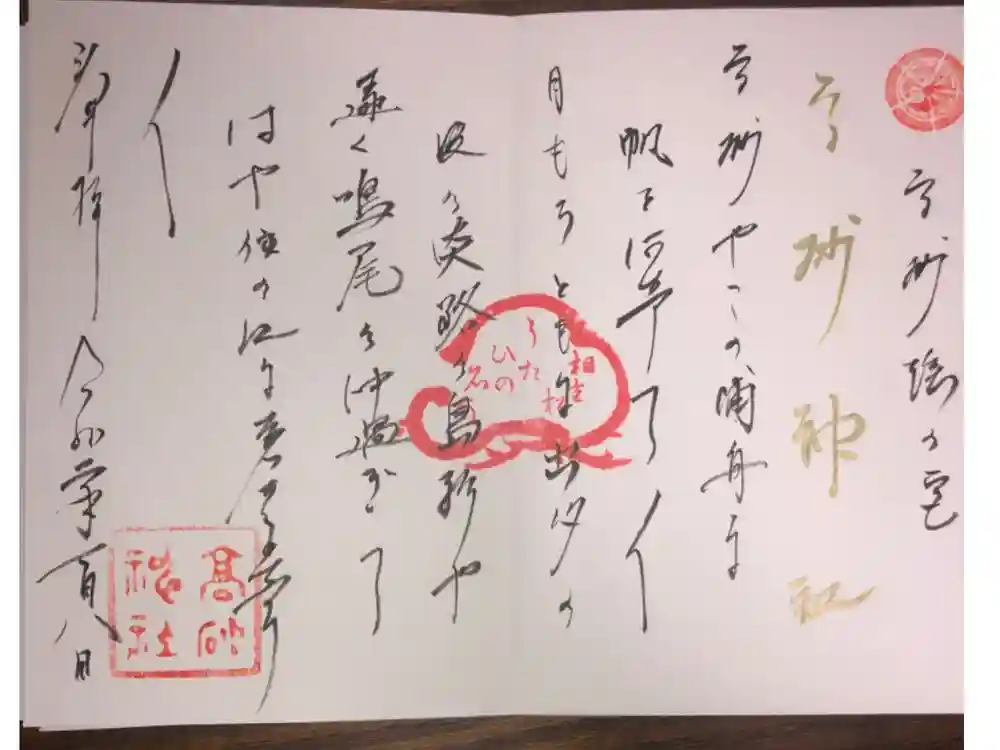 高砂謡の宮
高砂神社
高砂やこの浦舟に
帆を阿希て〳〵
月もろともに出汐の
波の淡路の島影や
遠く鳴尾の沖過ぎて
はや住の江に着き
〳〵
奉拝 令和 月八日
相生
松
うた
ひの
高砂
神社